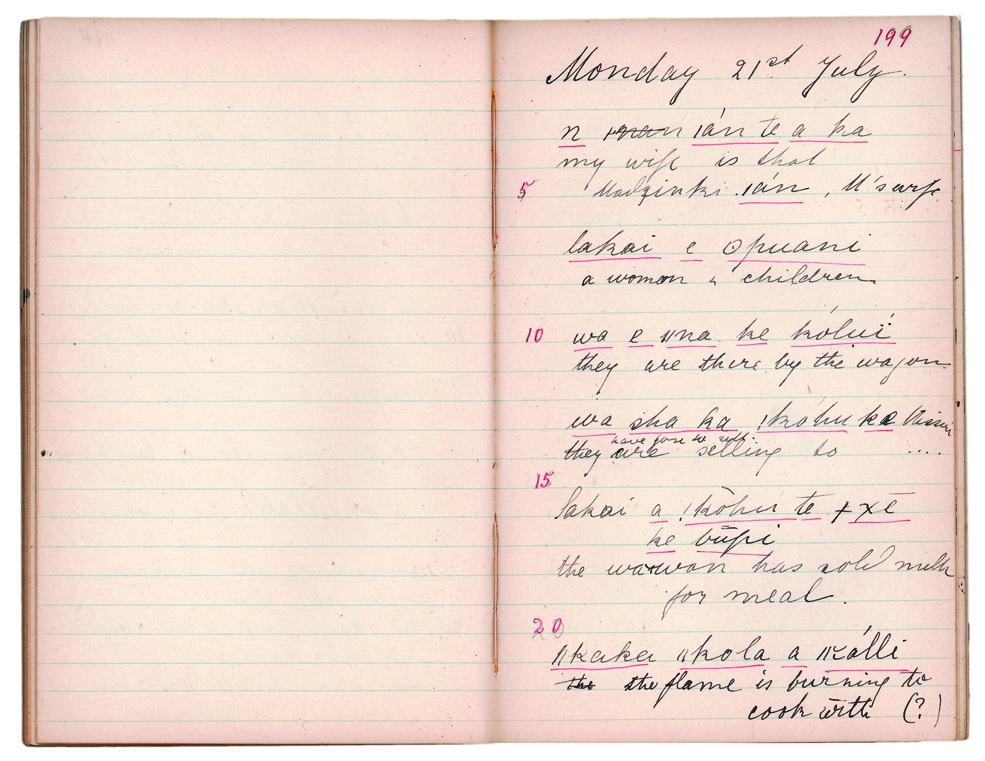 199
Monday 21st July.
n ián te a ka
my wife is that
5 ián, M's wife
lakai e ʘpuani
a woman & children
10 wa e ǁna ke kólui
they are there by the wagon
wa sha ka ǃkóhu ke
have gone to sell
they are selling to ....
15
lakai a ǃkōhu te ǂxē
ke būpi
the woman has sold milk
for meal.
20
ǁkaka ǁkola a
the the flame is burning to
cook with (?)